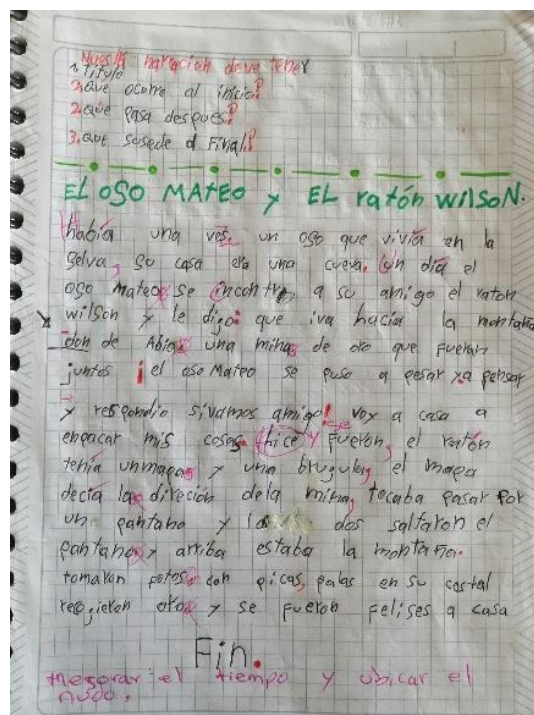 Nuestra narración deve tener
1. Titulo
2. que ocurre al inicio?
2. que pasa despues?
3. que susede al Final?
EL OSO MATEO y EL ratón WILSON.
había una ves, un oso que vivía en la
selva, su casa era una cueva. Un día el
oso Mateo se incontro a su amigo el raton
wilson y le dijo: que iva hacia la montaña
don de Abia una mina de oro que fueran
juntos ¡el oso Mateo se puso a pesar ya pensar
y respondio sivamos amigo! voy a casa a
enpacar mis cosas. hice y fueron, el ratón
tenía unmapa y una brugula, el mapa
decía la direción dela mina, tocaba pasar por
un pantano y los dos saltaron el
pantano y arriba estaba la montaña.
tomaron fotos con picas, palas en su costal
recojieron oro y se fueron felises a casa
Fin.
mejorar el tiempo y ubicar el
nudo.